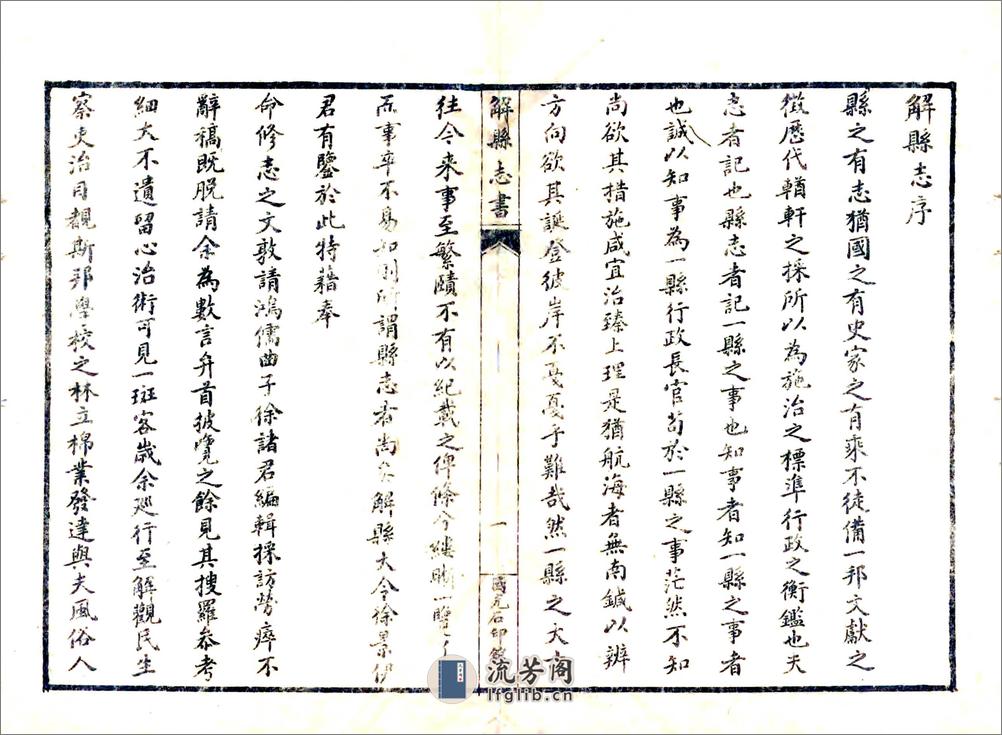 解縣志序
縣之有志猶國之有史家之有乘不徒備一邦文獻之
徵歷代輶軒之採所以為施治之標準行政之衡鑑也夫
志者記也縣志者記一縣之事也知事者知一縣之事者
也誠以知事為一縣行政長官苟於一縣之事茫然不知
尚欲其措施咸宜治臻上理是猶航海者無南鍼以辨
方向欲其誕登彼岸不戞戞乎難哉然一縣之大
解縣志書
一
國光石印
往今來事至繁賾不有以紀載之俾條分縷晰一覽
而事卒不易知則所謂縣志者尚矣解縣大令徐景伊
君有鑒於此特藉奉
命修志之文敦請鴻儒曲子徐諸君編輯採訪勞瘁不
辭稿既脫請余為數言弁首披覽之餘見其搜羅參考
細大不遺留心治術可見一斑客歲余巡行至解觀民生
察吏治目覩斯邦學校之林立棉業發達與夫風俗人
流芳阁
lfglib.cn